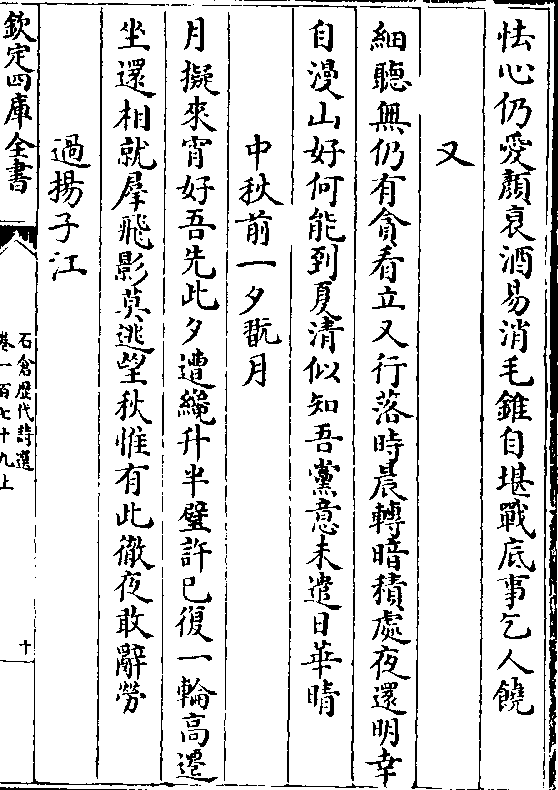 怯心仍愛顔衰酒易消毛錐自堪戰底事乞人饒
又
細聽無仍有貪看立又行落時晨轉暗積處夜還明幸
自漫山好何能到夏清似知吾黨意未遣日華晴
中秋前一夕翫月
月擬來宵好吾先此夕遭纔升半璧許已復一輪高遷
坐還相就羣飛影莫逃望秋惟有此徹夜敢辭勞
過揚子江
欽定四庫全書
石倉歷代詩選
卷一百七十九上
十